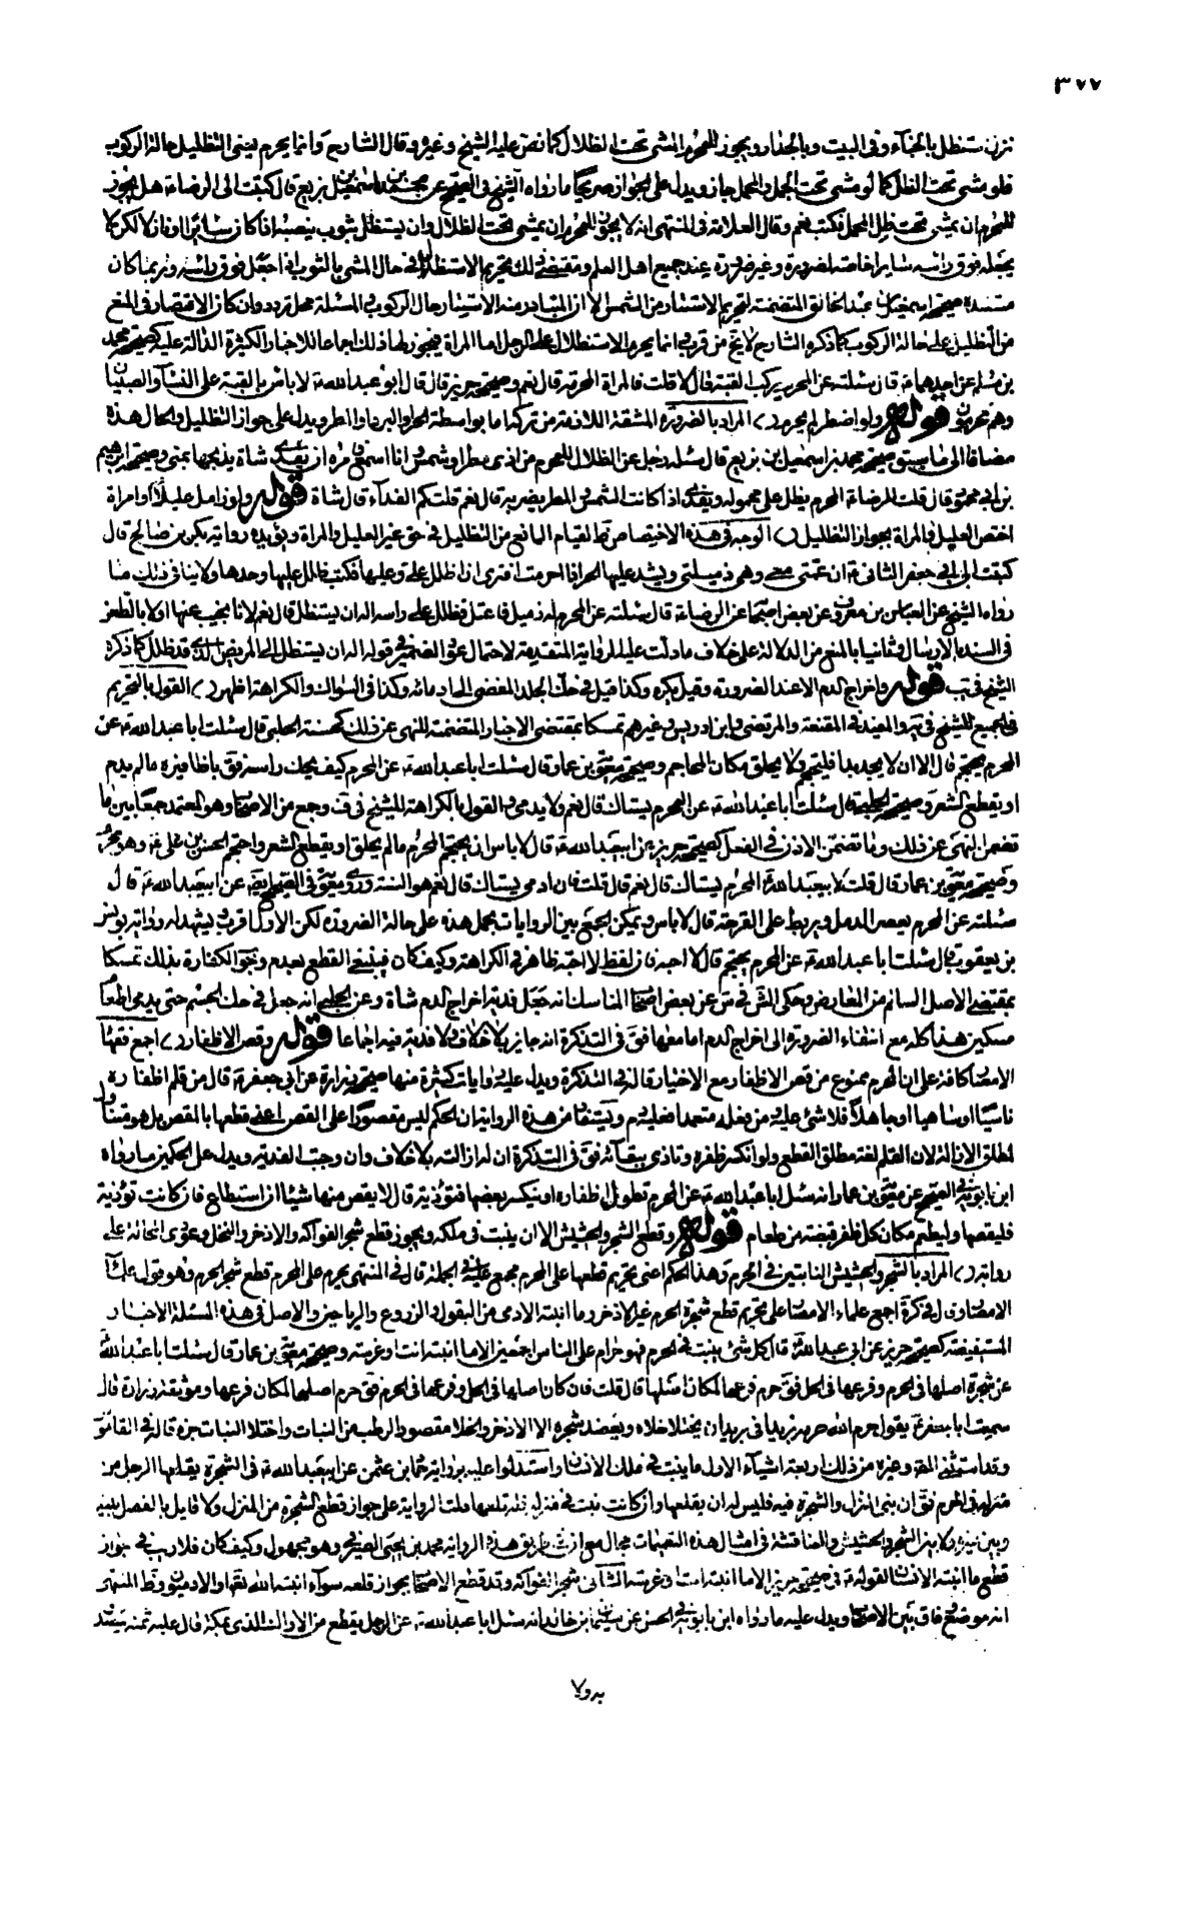 ٣٧٧
نزل تستظل بالخباء وفى البيت وبالجدار ويجوز للمحرم المشى تحت الظلال كما نص عليه الشيخ وغيره وقال الشارح وانما يحرم يعنى التظليل حالة الركوب
فلو مشى تحت الظل كما لو مشى تحت الجمل والمحمل جاز ويدل على الجواز صريحا ما رواه الشيخ فى الصحيح عن محمد بن اسمعيل بن بزيع قال كتبت الى الرضا ع هل يجوز
للمحرم ان يمشى تحت ظل المحمل فكتب نعم وقال العلامة فى المنتهى انه لا يجوز للمحرم ان يمشى تحت الظلال وان يستظل بثوب ينصبه اذا كان سائرا او نازلا لكن لا
يجعله فوق راسه سايرا خاصة لضرورة وغير ضرورة عند جميع اهل العلم ومقتضى ذلك تحريم الاستظلال فى حال المشى بالثوب اذا جعل فوق راسه وربما كان
مستنده صحيحة اسمعيل بن عبد الخالق المتضمنة لتحريم الاستتار من الشمس الا ان المتبادر منه الاستتار حال الركوب فى المسئلة محل تردد وان كان الاقتصار فى المنع
من التظليل على حالة الركوب كما ذكره الشارح لا يخ من قرب انما يحرم الاستظلال على الرجل اما المراة فيجوز لها ذلك اجماعا للاخبار الكثيرة الدالة عليه كصحيحة محمد
بن مسلم عن احدهما ع قال سئلته عن المحرم يركب القبة قال لا قلت فالمراة المحرمة قال نعم وصحيحة حريز قال قال ابو عبد الله ع لا باس بالقبة على النساء والصبيان
وهم محرمون قوله ولو اضطر لم يحرم المراد بالضرورة المشقة اللازمة من تركه اما بواسطة الحر والبرد او المطر ويدل على جواز التظليل والحال هذه
مضافا الى ما سبق صحيحة محمد بن اسمعيل بن بزيع قال سئله رجل عن الظلال للمحرم من اذى مطر او شمس وانا اسمع فامره ان يفدى شاة يذبحها بمنى وصحيحة ابراهيم
بن ابى محمود قال قلت للرضا ع المحرم يظل على محمله ويفدى اذا كانت الشمس والمطر يضر به قال نعم قلت كم الفداء قال شاة قوله ولو زامل عليلا او امراة
اختص العليل والمراة بجواز التظليل الوجه فى هذه الاختصاص ظ لقيام المانع من التظليل فى حق غير العليل والمراة ويؤيده رواية بكر بن صالح قال
كتبت الى ابى جعفر الثانى ع ان عمتى معى وهى زميلتى ويشتد عليها الحر اذا احرمت افترى ان اظلل على وعليها فكتب ظلل عليها وحدها ولا ينافى ذلك ما
رواه الشيخ عن العباس بن معروف عن بعض اصحابنا عن الرضا ع قال سئلته عن المحرم له زميل فاعتل فظلل على راسه اله ان يستظل قال نعم لانا نجيب عنها اولا بالطعن
فى السند بالارسال وثانيا بالمنع من الدلالة على خلاف ما دلت عليه الرواية المتقدمة لاحتمال عود الضمير فى قوله اله ان يستظل الى المريض الذى قد ظلل كما ذكره
الشيخ فى يب قوله واخراج الدم الا عند الضرورة وقيل يكره وكذا قيل فى حك الجلد المفضى الى ادمائه وكذا فى السواك والكراهة اظهر القول بالتحريم
فى الجميع للشيخ فى ية والمفيد فى المقنعة والمرتضى وابن ادريس وغيرهم تمسكا بمقتضى الاخبار المتضمنة للنهى عن ذلك كحسنة الحلبى قال سئلت ابا عبد الله ع عن
المحرم يحتجم قال لا الا ان لا يجد بدا فليحتجم ولا يحلق مكان المحاجم وصحيحة معوية بن عمار قال سئلت ابا عبد الله ع عن المحرم كيف يحك راسه فق باظافيره ما لم يدم
او يقطع الشعر وصحيحة الحلبى قال سئلت ابا عبد الله ع عن المحرم يستاك قال نعم ولا يدمى والقول بالكراهة للشيخ فى ف وجمع من الاصحاب وهو المعتمد جمعا بين ما
تضمن النهى عن ذلك وما تضمن الاذن فى الفعل كصحيحة حريز عن ابيعبد الله ع قال لا باس ان يحتجم المحرم ما لم يحلق او يقطع الشعر واحتجم الحسن بن على ع وهو محرم
وصحيحة معوية بن عمار قال قلت لابيعبد الله ع المحرم يستاك قال نعم قال قلت فان ادمى يستاك قال نعم هو السنة وروى معوية فى الصحيح ايضا عن ابيعبد الله ع قال
سئلته عن المحرم يعصر الدمل ويربط على القرحة قال لا باس ويمكن الجمع بين الروايات بحمل هذه على حالة الضرورة لكن الاول اقرب ويشهد له رواية يونس
بن يعقوب قال سئلت ابا عبد الله ع عن المحرم يحتجم قال لا احبه فان لفظ لا احبه ظاهر فى الكراهة وكيف كان فينبغى القطع بعدم وجوب الكفارة بذلك تمسكا
بمقتضى الاصل السالم من المعارض وحكى الش فى س عن بعض اصحاب المناسك انه جعل فدية اخراج الدم شاة وعن الحلبى انه جعل فى حك الجسم حتى يدمى اطعام
مسكين هذا كله مع انتفاء الضرورة الى اخراج الدم اما معها فق فى التذكرة انه جايز بلا خلاف ولا فدية فيه اجماعا قوله وقص الاظفار اجمع فقهاء
الامصار كافة على ان المحرم ممنوع من قص الاظفار مع الاختيار قاله فى التذكرة ويدل عليه روايات كثيرة منها صحيحة زرارة عن ابى جعفر ع قال من قلم اظفاره
ناسيا او ساهيا او جاهلا فلا شئ عليه من فعله متعمدا فعليه دم ويستفاد من هذه الرواية ان الحكم ليس مقصورا على القص اعنى قطعها بالمقص بل هو متناول
لمطلق الازالة لان القلم لغة مطلق القطع ولو انكسر ظفره وتاذى ببقائه فق فى التذكرة ان له ازالته بلا خلاف وان وجبت الفدية ويدل على الحكمين ما رواه
ابن بابويه فى الصحيح عن معوية بن عمار انه سئل ابا عبد الله ع عن المحرم تطول اظفاره او ينكسر بعضها فتؤذيه قال لا يقص منها شيئا ان استطاع فان كانت تؤذيه
فليقصها وليطعم مكان كل ظفر قبضة من طعام قوله وقطع الشجر والحشيش الا ان ينبت فى ملكه ويجوز قطع شجر الفواكه والاذخر والنخل وعودى المحالة على
رواية المراد بالشجر والحشيش النابتين فى الحرم وهذا الحكم اعنى تحريم قطعها على المحرم مجمع عليه فى الجملة قال فى المنتهى يحرم على المحرم قطع شجر الحرم وهو قول علماء
الامصار وقال فى كرة اجمع علماء الامصار على تحريم قطع شجر الحرم غير الاذخر وما انبته الادمى من البقول والزروع والرياحين والاصل فى هذه المسئلة الاخبار
المستفيضة كصحيحة حريز عن ابى عبد الله ع قال كل شئ ينبت فى الحرم فهو حرام على الناس اجمعين الا ما انبته انت او غرسته وصحيحة معوية بن عمار قال سئلت ابا عبد الله ع
عن شجرة اصلها فى الحرم وفرعها فى الحل فق حرم فرعها لمكان اصلها قال قلت فان كان اصلها فى الحل وفرعها فى الحرم فق حرم اصلها لمكان فرعها وموثقة زرارة قال
سمعت ابا جعفر ع يقول حرم الله حرمه بريدا فى بريد ان يختلا خلاه ويعضد شجره الا الاذخر والخلا مقصورا الرطب من النبات واختلا النبات جزه قاله فى القاموس
وقد استثنى المص وغيره من ذلك اربعة اشياء الاول ما ينبت فى ملك الانسان واستدلوا عليه برواية حماد بن عثمن عن ابيعبد الله ع فى الشجرة يقلعها الرجل من
منزله فى الحرم فق ان بنى المنزل والشجرة فيه فليس له ان يقلعها وان كانت نبتت فى منزله فله قلعها دلت الرواية على جواز قطع الشجرة من المنزل ولا قايل بالفصل بينه
وبين غيره ولا بين الشجر والحشيش والمناقشة فى امثال هذه التعميمات مجال مع ان فى طريق هذه الرواية محمد بن يحيى الصيرفى وهو مجهول وكيف كان فلا ريب فى جواز
قطع ما انبته الانسان لقوله ع فى صحيحة حريز الا ما انبته انت او غرسته الثانى شجر الفواكه وقد قطع الاصحاب بجواز قلعه سواء انبته الله تعالى او الادميون وظ المنتهى
انه موضع وفاق بين الاصحاب ويدل عليه ما رواه ابن بابويه فى الحسن عن سليمان بن خالد انه سئل ابا عبد الله ع عن الرجل يقطع من الاراك الذى بمكة قال عليه ثمنه يتصدق
به ولا